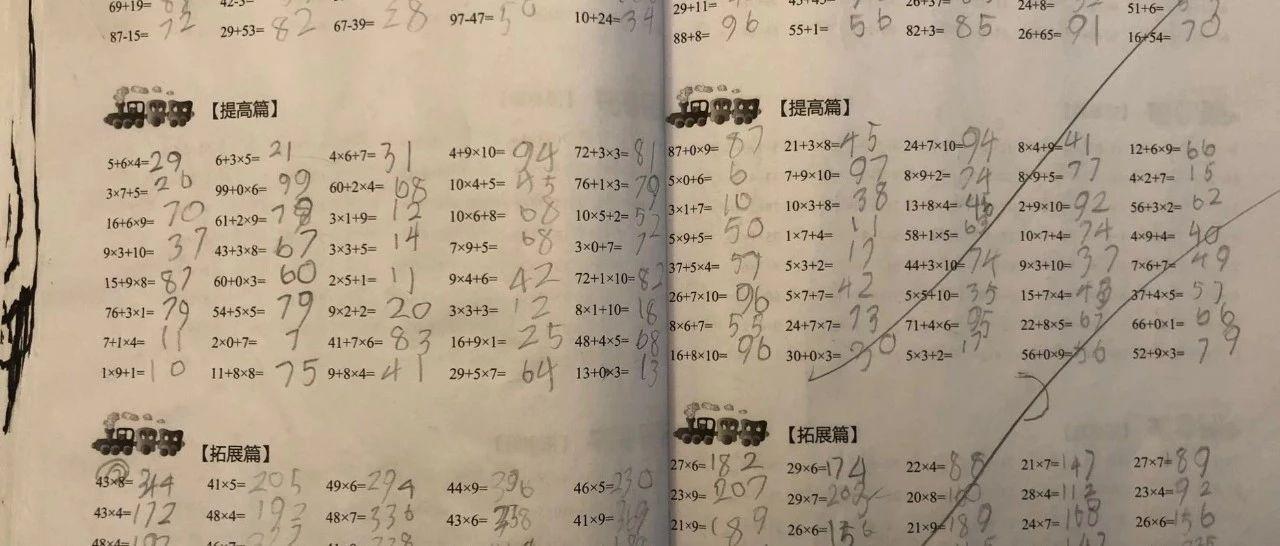 69+19=88 42-3=
87-15=72 29+53=82 67-39=28 97-47=50 10+24=34
【提高篇】
5+6×4=29 6+3×5=21 4×6+7=31 4+9×10=94 72+3×3=81
3×7+5=26 99+0×6=99 60+2×4=68 10×4+5=45 76+1×3=79
16+6×9=70 61+2×9=79 3×1+9=12 10×6+8=68 10×5+2=52
9×3+10=37 43+3×8=67 3×3+5=14 7×9+5=68 3×0+7=7
15+9×8=87 60+0×3=60 2×5+1=11 9×4+6=42 72+1×10=82
76+3×1=79 54+5×5=79 9×2+2=20 3×3+3=12 8×1+10=18
7+1×4=11 2×0+7=7 41+7×6=83 16+9×1=25 48+4×5=68
1×9+1=10 11+8×8=75 9+8×4=41 29+5×7=64 13+0×3=13
【拓展篇】
43×8=344 41×5=205 49×6=294 44×9=396 46×5=230
43×4=172 48×4=192 48×7=336 43×6=258 41×9=369
29+11= 24+8= 51+6=
88+8=96 55+1=56 82+3=85 26+65=91 16+54=70
【提高篇】
87+0×9=87 21+3×8=45 24+7×10=94 8×4+9=41 12+6×9=66
5×0+6=6 7+9×10=97 8×9+2=74 8×9+5=77 4×2+7=15
3×1+7=10 10×3+8=38 13+8×4=45 2+9×10=92 56+3×2=62
5×9+5=50 1×7+4=11 58+1×5=63 10×7+4=74 4×9+4=40
37+5×4=57 5×3+2=17 44+3×10=74 9×3+10=37 7×6+7=49
26+7×10=96 5×7+7=42 5×5+10=35 15+7×4=43 37+4×5=57
8×6+7=55 24+7×7=73 71+4×6=95 22+8×5=62 66+0×1=66
16+8×10=96 30+0×3=30 5×3+2=17 56+0×9=56 52+9×3=79
【拓展篇】
27×6=182 29×6=174 22×4=88 21×7=147 27×7=189
23×9=207 29×7=203 20×8=160 28×4=112 23×4=92
21×9=189 26×6=156 21×9=189 24×7=168 26×6=156